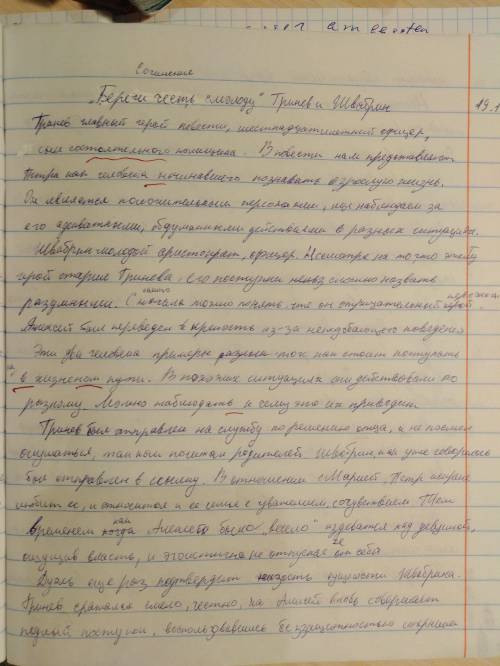 Сочинение
„Береги честь смолоду" Гринев и Швабрин
Гринев главный герой повести, шестнадцатилетний офицер,
сын состоятельного помещика. В повести нам представляют
Петра как человека начинавшего познавать взрослую жизнь.
Он является положительным персонажем, мы наблюдаем за
его адекватными, обдуманными действиями в разных ситуациях.
Швабрин молодой аристократ, офицер. Несмотря на то что этот
герой старше Гринева, его поступки невозможно назвать
разумными. С самого начала можно понять что он отрицательный персонаж
Алексей был переведен в крепость из-за неподобающего поведения
Эти два человека примеры разных того как стоит поступать
в жизненом пути. В похожих ситуациях они действовали по
разному. Можно наблюдать к чему это их приводит.
Гринев был отправлен на службу по решению отца, и не посмел
ослушаться, так как почитал родителей Швабрин, как уже говорилось
был отправлен в ссылку. В отношении с Марией, Петр искрене
любит ее, и относится к ее семье с уважением, сочувствием Тем
временем как Алексею было „весело" издеваться над девушкой,
ощущив власть, и эгоистично не отпускает ее от себя
Дуэль еще раз подтвердит низость сущности Швабрина.
Гринев сражался смело, честно, но Алексей вновь совершает
подлый поступок, воспользовавшись беззащитностью соперника